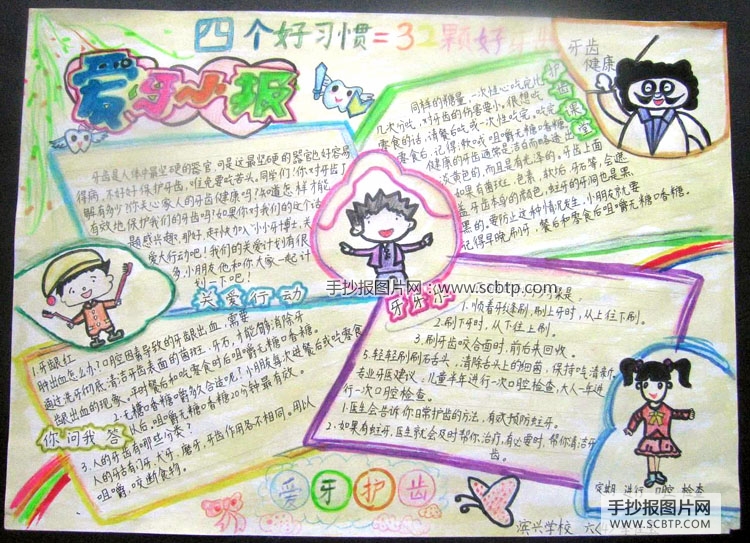 四个好习惯=32颗好牙齿
爱牙小报
牙齿
健康
护齿课堂
牙齿是人体中最坚硬的器官,可是这最坚硬的器官也好容易
得病,不好好保护牙齿,唯免要吃苦头。同学们!你对牙齿了
解有多少?你关心家人的牙齿健康吗?知道怎样才能
有效地保护我们的牙齿吗?如果你对我们的这个话
题感兴趣,那好,走!快加入“小小牙博士,关
爱大行动吧!我们的关爱计划有很
多,小朋友他和你大家一起计
划一下吧!
关爱行动
同样的糖量,一次性心吃完比
几次分吃,对牙齿的伤害要小。很想吃
零食的话,请餐后吃或一次性吃完,吃完
零食后,记得:软或咀嚼无糖口香糖。
健康的牙齿通常是洁白而略透出
淡黄色的,而且是有光泽的。牙齿上面
如果有菌斑、色素、软垢、牙石等,会遮
盖牙齿本身的颜色,蛀牙的牙洞也是黑
黑的。要防止这种情况发生,小朋友就要
记得早晚刷牙,餐后和零食后咀嚼无糖口香糖。
手抄报图片网:www.scbtp.com
1.牙龈红
肿出血怎么办?口腔因素导致的牙龈出血,需要
通过洗牙彻底清洁牙齿表面的菌斑、牙石,才能够消除牙
龈出血的现象。平时餐后和吃零食时后咀嚼无糖口香糖。
2.无糖口香糖嚼多久合适呢?小朋友每次进餐后或吃零食
以后,咀嚼无糖口香糖20分钟最有效。
你问我答
3.人的牙齿有哪些分类?
人的牙齿有门牙、犬牙、磨牙,牙齿作用各不相同。用以
咀嚼,咬断食物。
1.顺着牙缝刷,刷上牙时,从上往下刷。
2.刷下牙时,从下往上刷。
3.刷牙齿咬合面时,前后来回收。
5.轻轻刷刷石舌头,清除舌头上的细菌,保持吃清新。
专业牙医建议,儿童半年进行一次口腔检查,大人一年进
行一次口腔检查。
1.医生会告诉你日常护齿的方法,有效预防蛀牙。
2.如果有蛀牙,医生就会及时帮你治疗,有必要时,帮你清洁牙
齿。
爱牙护齿
定期进行口腔检查
滨兴学校
手抄报图片网
WWW.SCBTP.COM